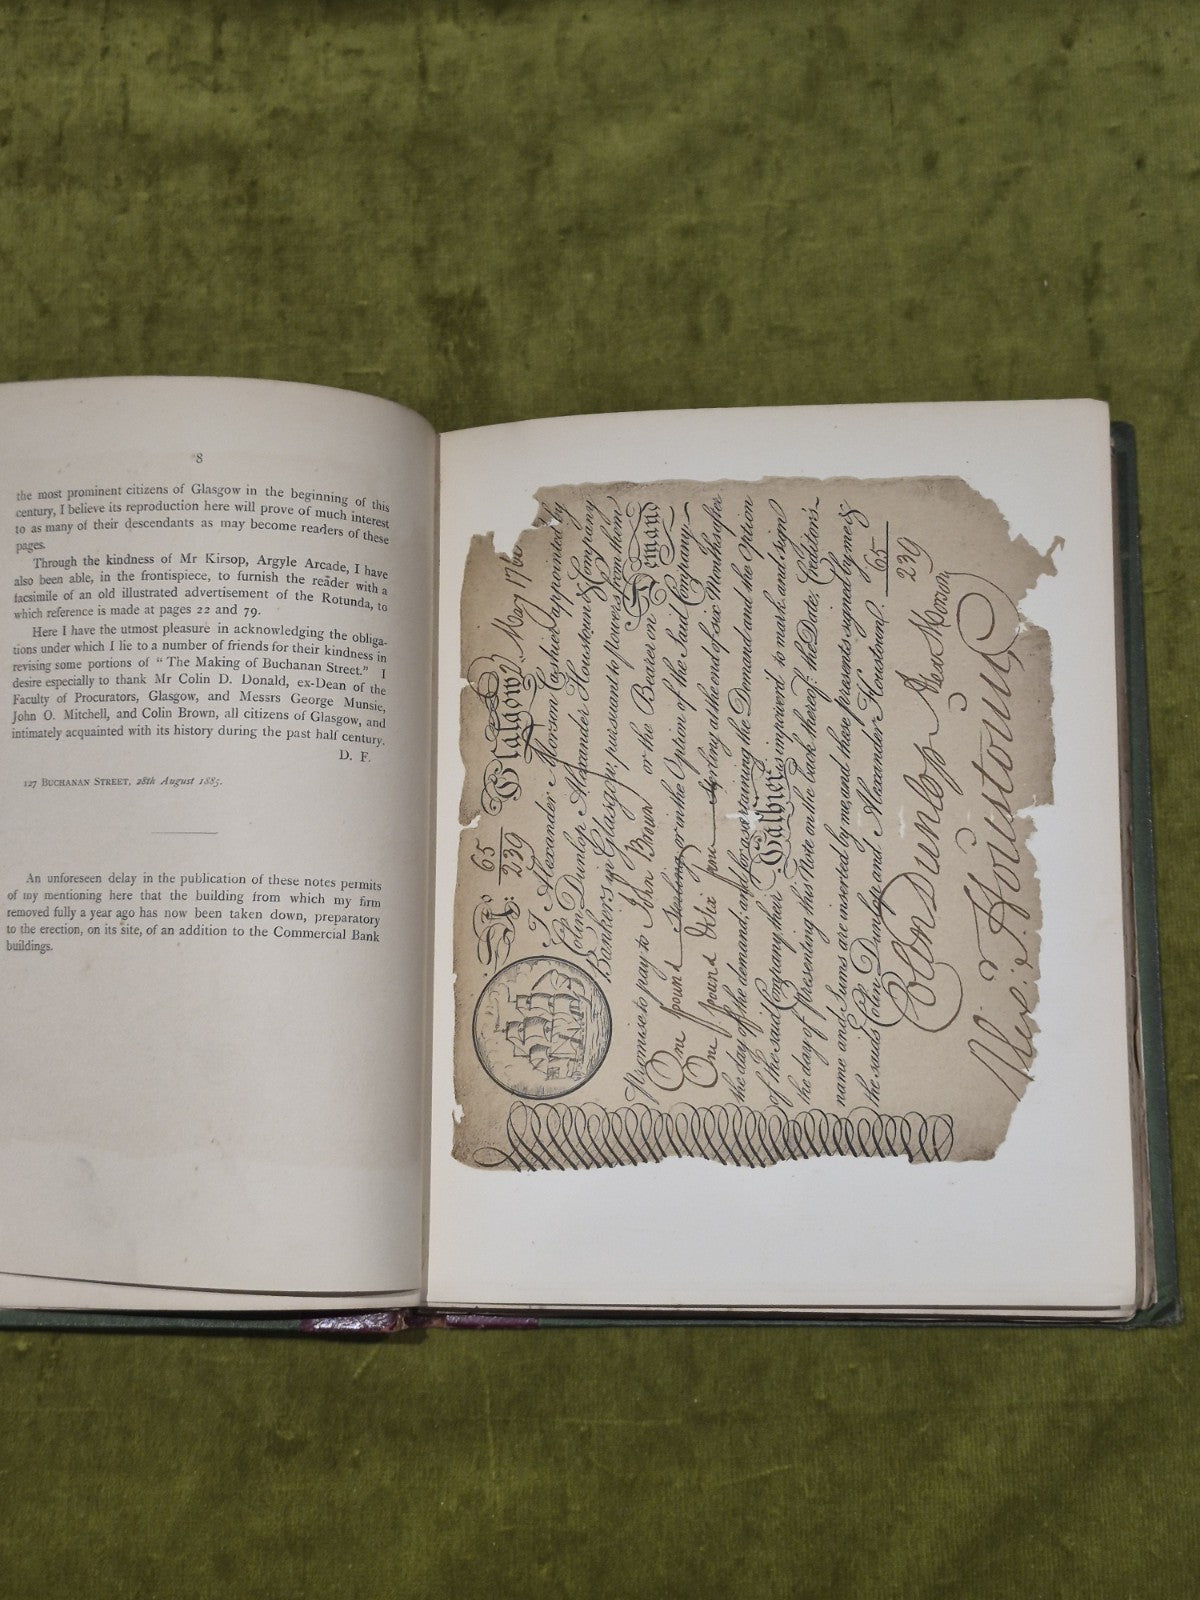 8
the most prominent citizens of Glasgow in the beginning of this
century, I believe its reproduction here will prove of much interest
to as many of their descendants as may become readers of these
pages.
Through the kindness of Mr Kirsop, Argyle Arcade, I have
also been able, in the frontispiece, to furnish the reader with a
facsimile of an old illustrated advertisement of the Rotunda, to
which reference is made at pages 22 and 79.
Here I have the utmost pleasure in acknowledging the obliga-
tions under which I lie to a number of friends for their kindness in
revising some portions of "The Making of Buchanan Street." I
desire especially to thank Mr Colin D. Donald, ex-Dean of the
Faculty of Procurators, Glasgow, and Messrs George Munsie,
John O. Mitchell, and Colin Brown, all citizens of Glasgow, and
intimately acquainted with its history during the past half century.
D. F.
127 BUCHANAN STREET, 28th August 1885.
An unforeseen delay in the publication of these notes permits
of my mentioning here that the building from which my firm
removed fully a year ago has now been taken down, preparatory
to the erection, on its site, of an addition to the Commercial Bank
buildings.
No. 65/239 Glasgow May 176
I Alexander Morson Cashier appointed by
Colin Dunlop Alexander Houstoun & Company
Bankers in Glasgow, pursuant to powers from them
Promise to pay to John Brown or the Bearer on Demand
One pound Sterling or in the Option of the Said Company
One pound Sterling at the end of six Months after
the day of the demand, and for ascertaining the Demand and the Option
of the said Company their Cashier is impowerd to mark and sign
the day of Presenting this Note on the back hereof: the Date,
name and Sums are inserted by me, and these presents signed by me &
the saids Colin Dunlop and Alexander Houstoun. 65/239
Colin Dunlop Alex Morson
Alex: Houstoun